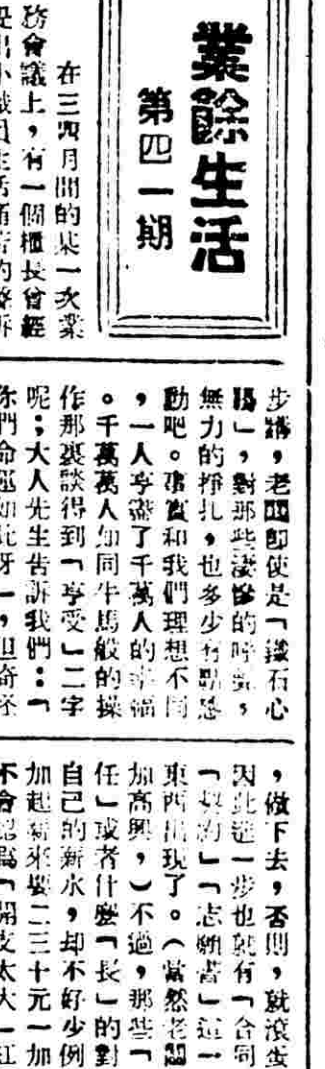 業餘生活
第四一期
在三四月間的某一次業
務會議上，有一個櫃長曾經
步講，老闆即使是「鐵石心
腸」，對那些淒慘的呼
無力的掙扎，也多少有點感
動吧。事實和我們理想不同
，一人享盡了千萬人的幸福
。千萬萬人如同牛馬般的操
作那裏談得到「享受」二字
呢；大人先生告訴我們：「
你們命運如此呀」，但奇怪
，做下去，否則，就滾蛋
因此進一步也就有「合同
「契約」「志願書」這一
東西出現了。（當然老闆
加高興，）不過，那些「
任」或者什麼「長」的對
自己的薪水，却不好少例
加起薪來要二三十元一加
不會認爲「開支太大」紅